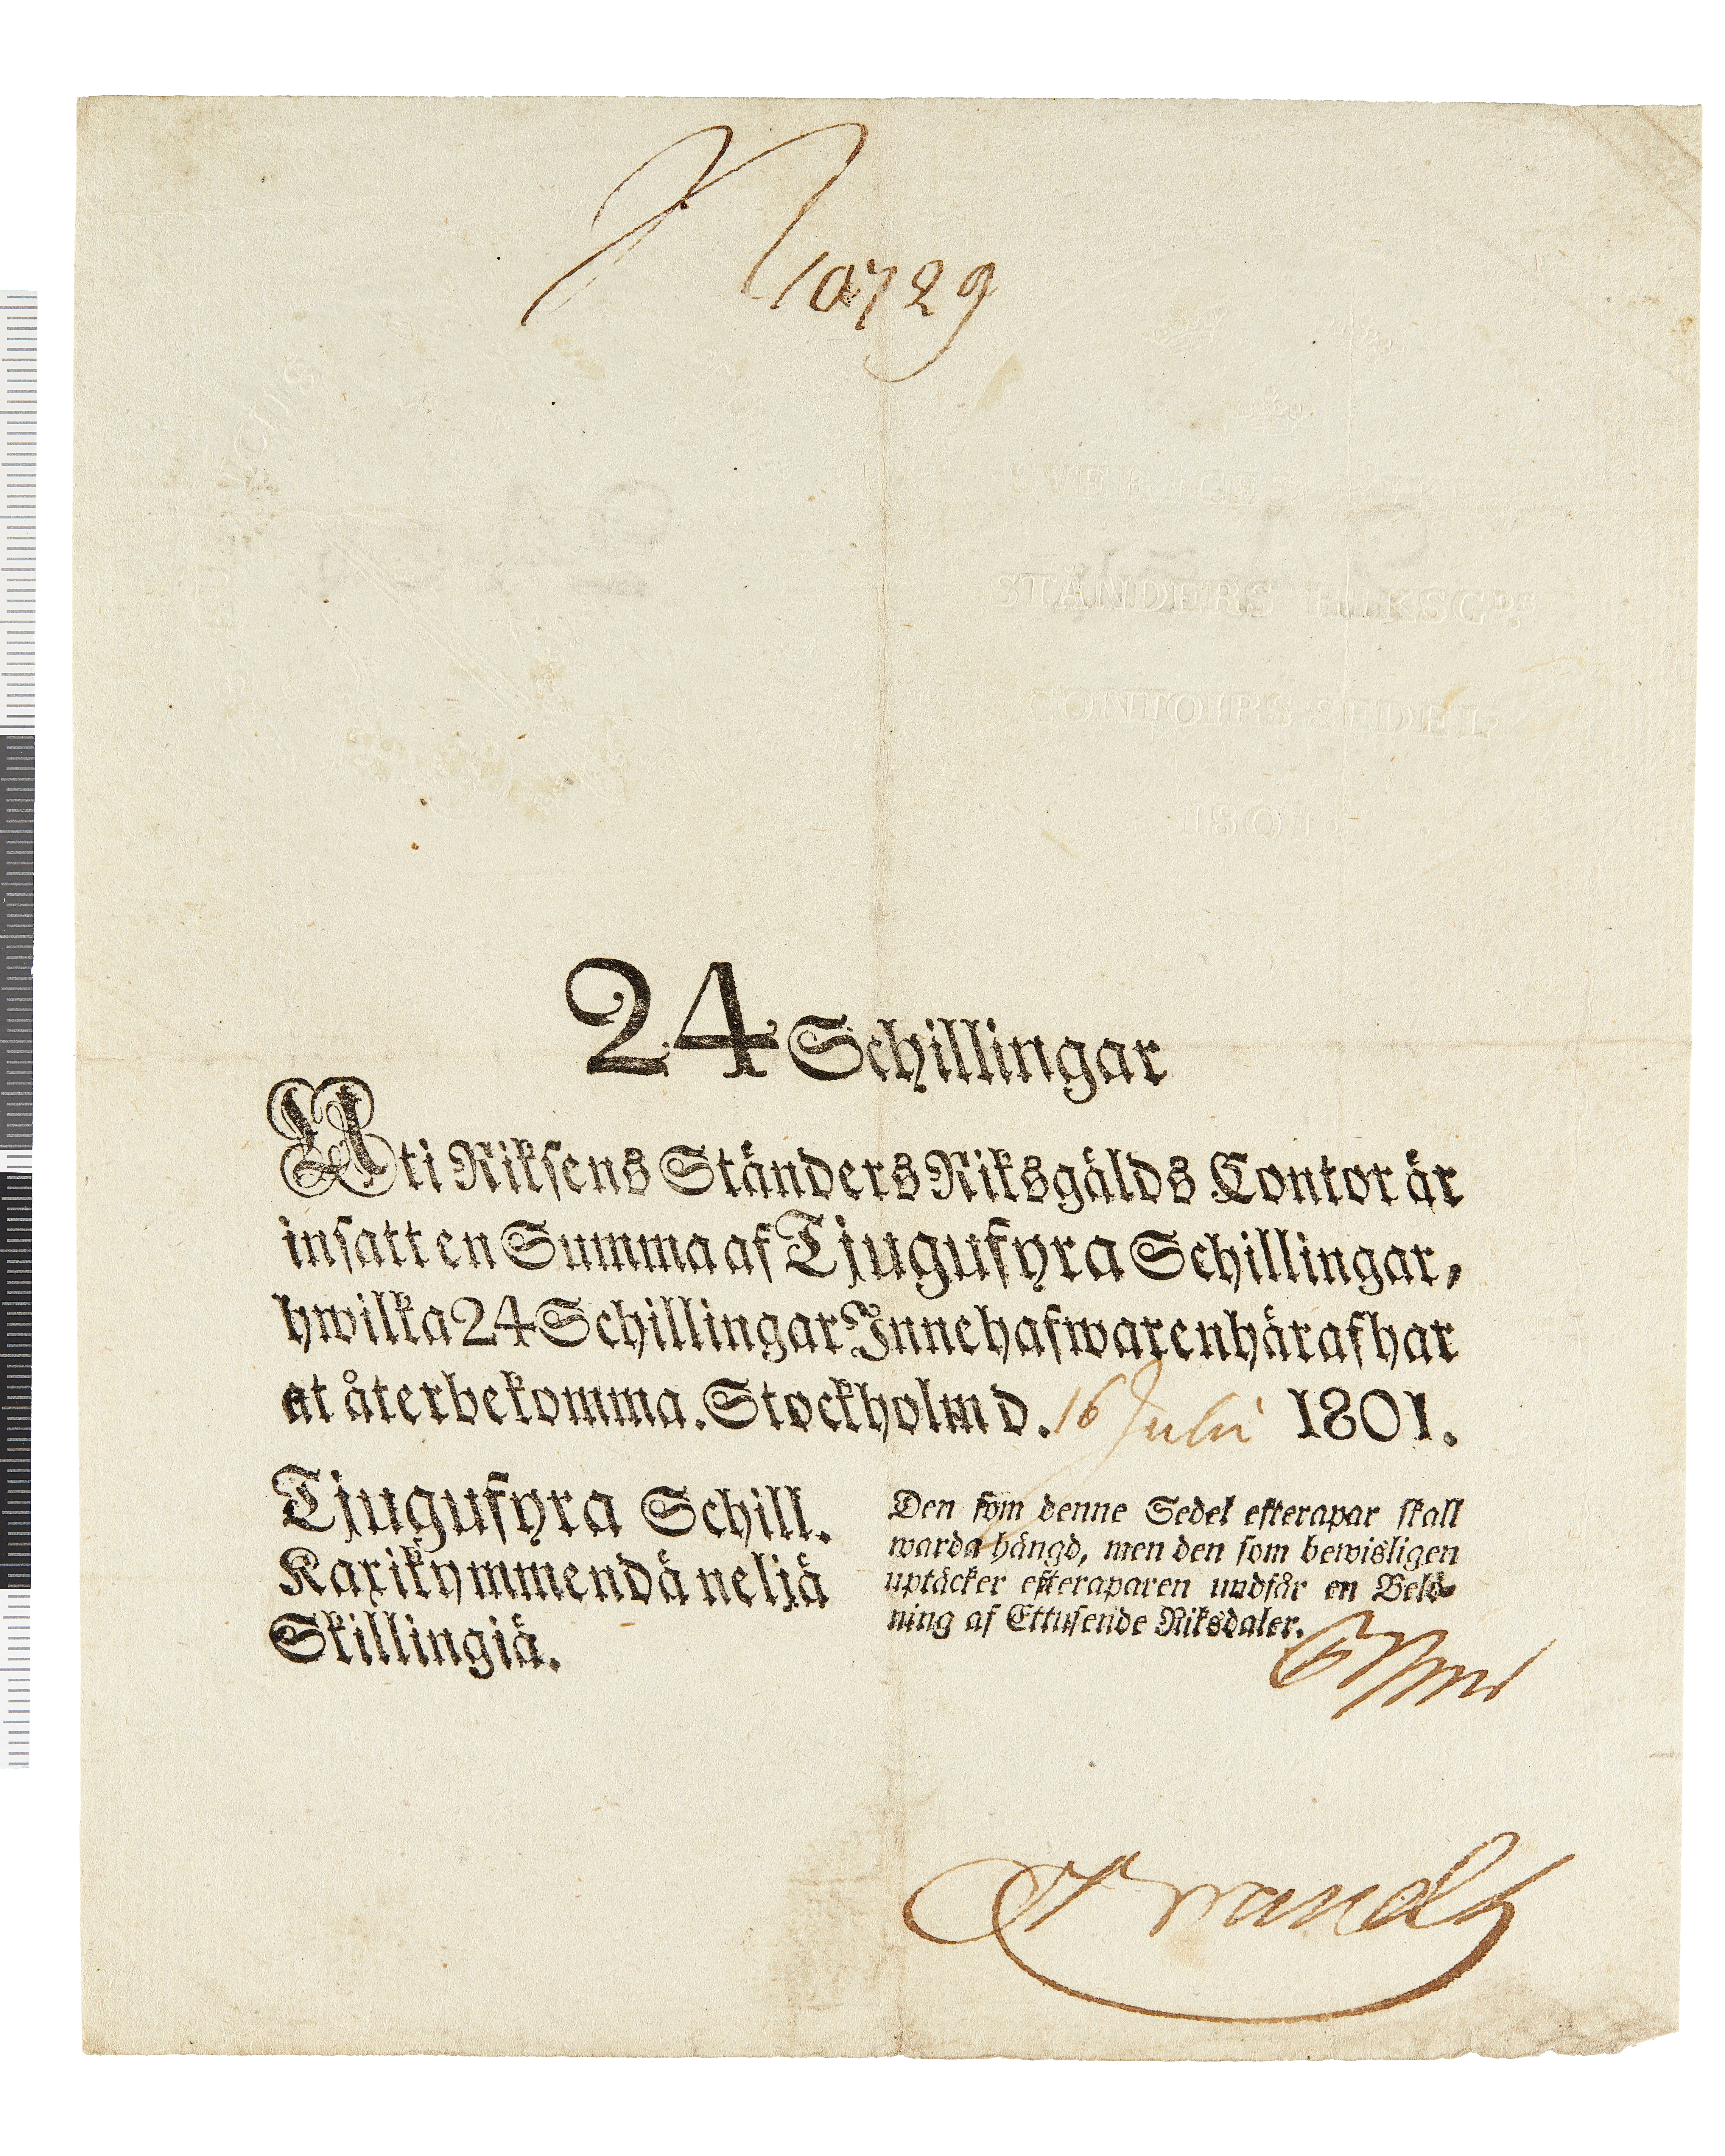 N 10729
SVERIGES RIKES
STÄNDERS RIKSG.DS
CONTOIRS SEDEL
1801.
24 Schillingar
Uti Riksens Ständers Riksgälds Contor är
insatt en Summa af Tjugufyra Schillingar,
hwilka 24 Schillingar Innehafwaren häraf har
at återbekomma. Stockholm d. 16 Julii 1801.
Tjugufyra Schill.
Kaxikymmendä neljä
Skillingiä.
Den som denne Sedel efterapar skall
warda hängd, men den som bewisligen
uptäcker efteraparen undfår en Belö-
ning af Ettusende Riksdaler.